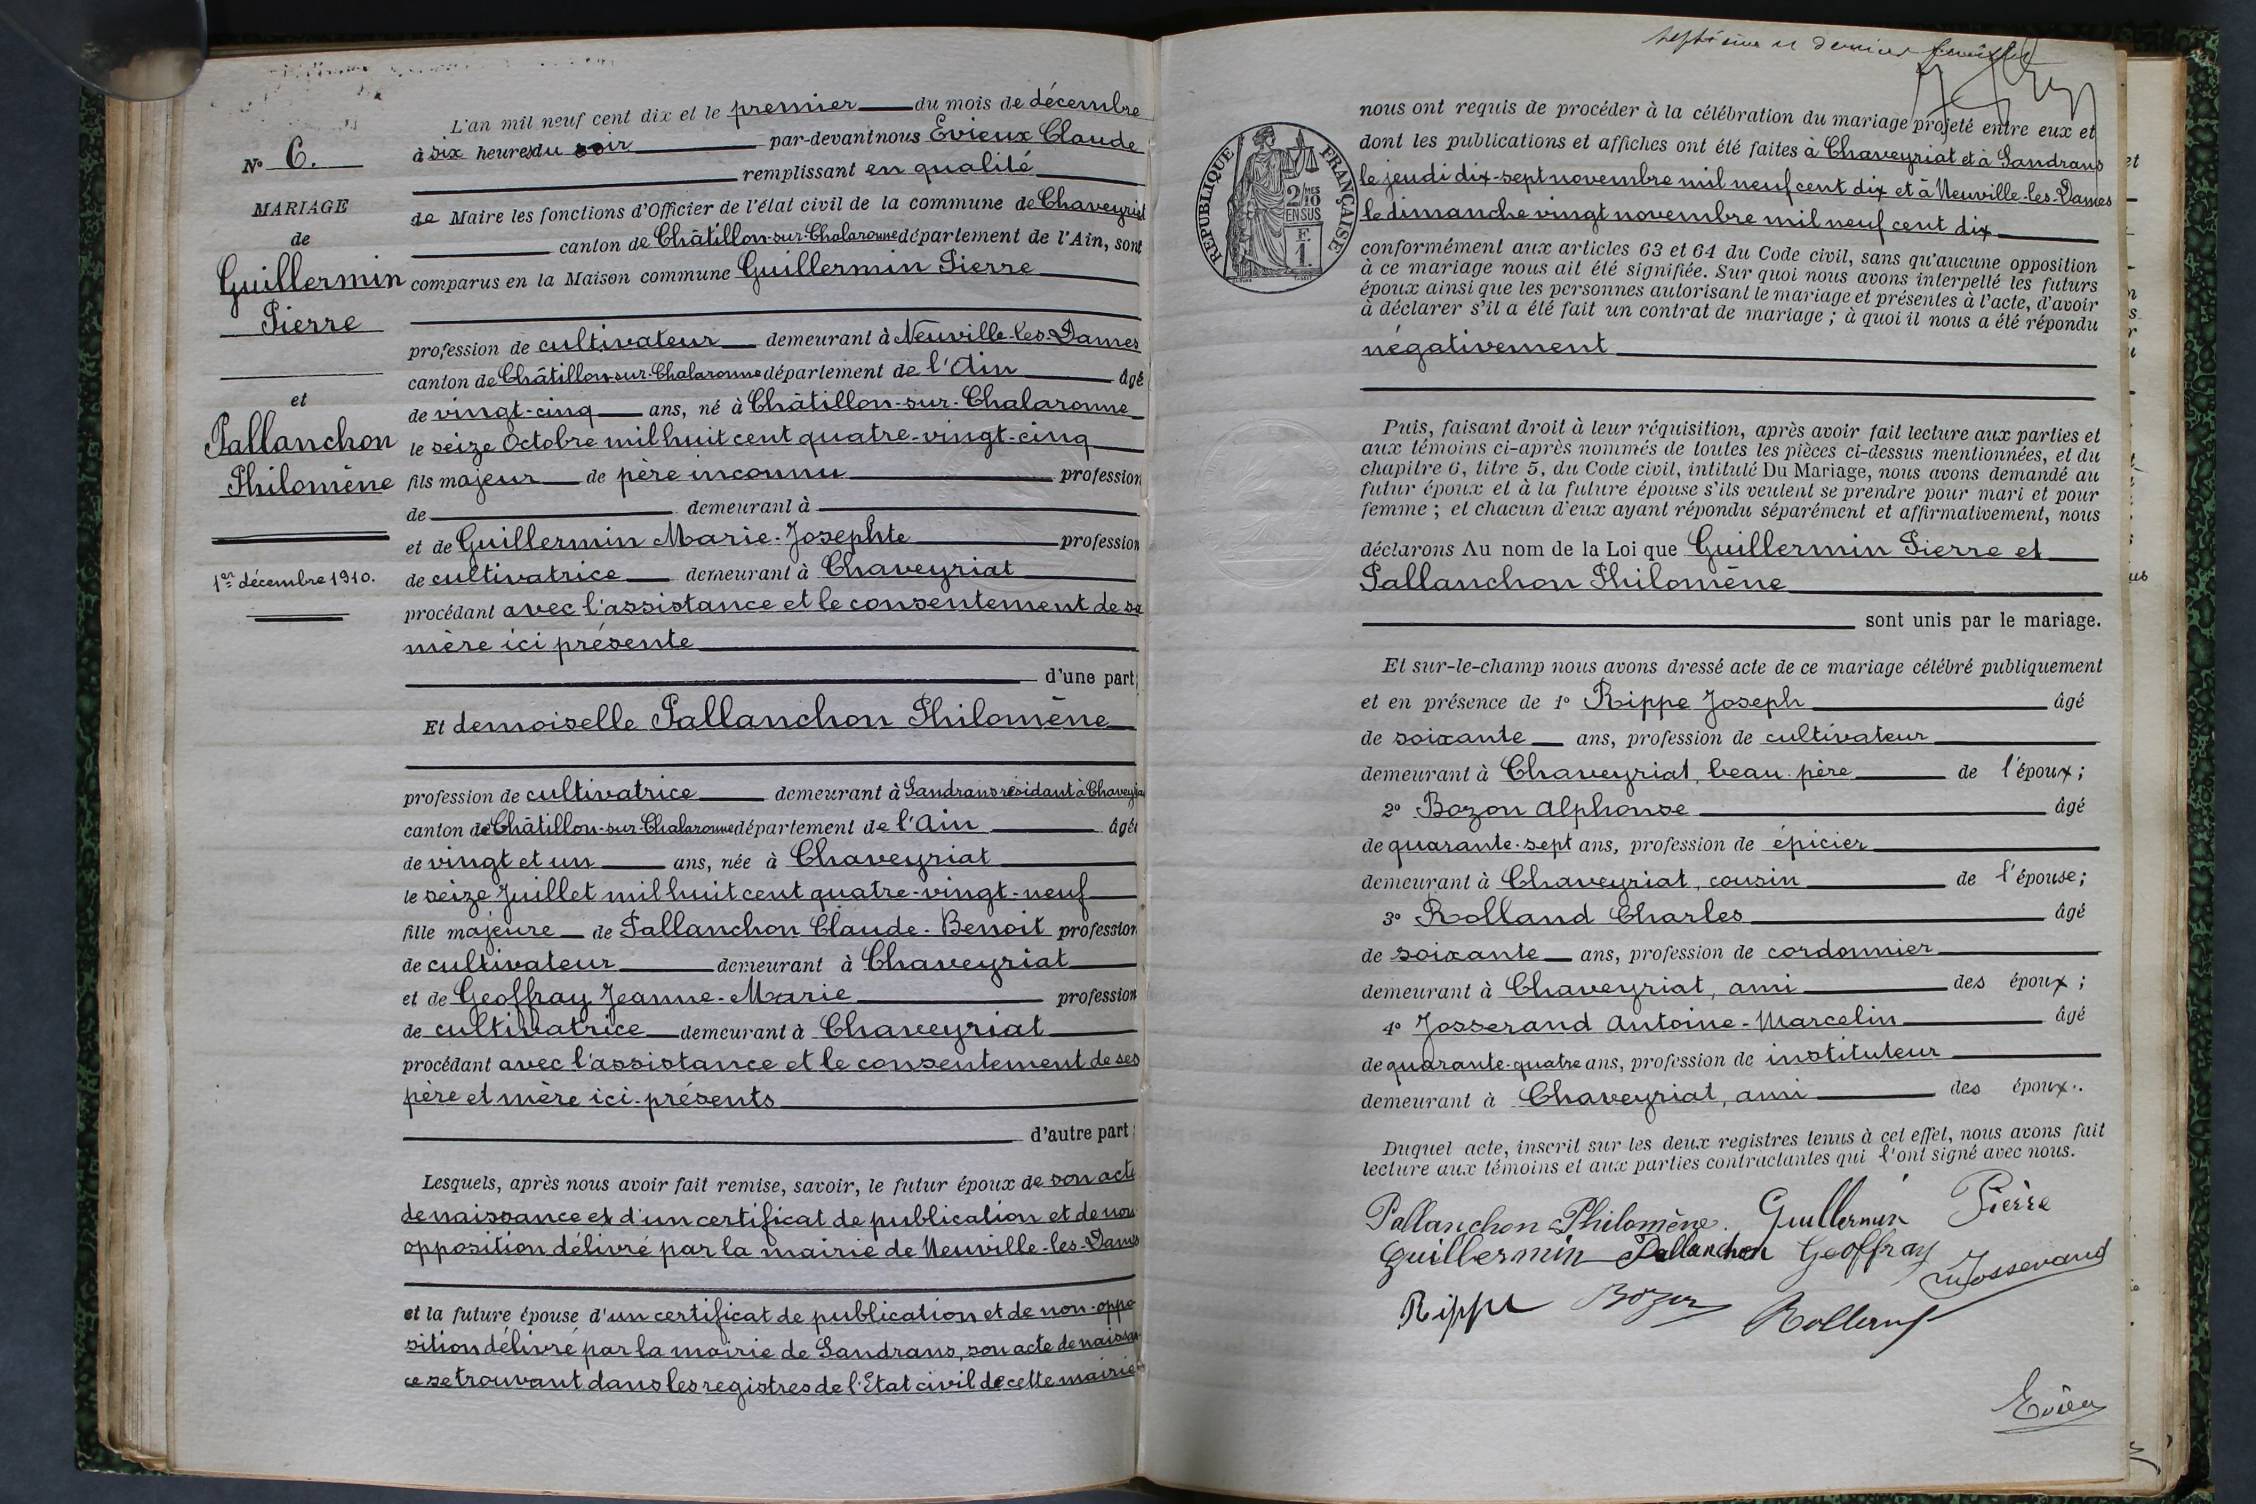 L'an mil neuf cent dix et le premier du mois de décembre
à six heures du soir par-devant nous Evieux Claude
remplissant en qualité
de Maire les fonctions d'Officier de l'état civil de la commune de Chaveyriat
canton de Châtillon-sur-Chalaronne département de l'Ain, sont
comparus en la Maison commune Guillermin Pierre
profession de cultivateur demeurant à Neuville-les-Dames
canton de Châtillon-sur-Chalaronne département de l'Ain âgé
de vingt-cinq ans, né à Châtillon-sur-Chalaronne
le seize Octobre mil huit cent quatre-vingt-cinq
fils majeur de père inconnu profession
de demeurant à
et de Guillermin Marie-Josephte profession
de cultivatrice demeurant à Chaveyriat
procédant avec l'assistance et le consentement de sa
mère ici présente
d'une part;
Et demoiselle Pallanchon Philomène
profession de cultivatrice demeurant à Sandrans résidant à Chaveyriat
canton de Châtillon-sur-Chalaronne département de l'Ain âgée
de vingt et un ans, née à Chaveyriat
le seize Juillet mil huit cent quatre-vingt-neuf
fille majeure de Pallanchon Claude-Benoit profession
de cultivateur demeurant à Chaveyriat
et de Geoffray Jeanne-Marie profession
de cultivatrice demeurant à Chaveyriat
procédant avec l'assistance et le consentement de ses
père et mère ici présents
d'autre part;
Lesquels, après nous avoir fait remise, savoir, le futur époux de son acte
de naissance et d'un certificat de publication et de non
opposition délivré par la mairie de Neuville-les-Dames
et la future épouse d'un certificat de publication et de non-oppo
sition délivré par la mairie de Sandrans, son acte de naissan-
ce se trouvant dans les registres de l'Etat civil de cette mairie
N° 6.
MARIAGE
de
Guillermin
Pierre
et
Pallanchon
Philomène
1er décembre 1910.
septième et dernier feuillet
RÉPUBLIQUE FRANÇAISE
2/10 MES
EN SUS
F.
1.
nous ont requis de procéder à la célébration du mariage projeté entre eux et
dont les publications et affiches ont été faites à Chaveyriat et à Sandrans
le jeudi dix-sept novembre mil neuf cent dix et à Neuville-les-Dames
le dimanche vingt novembre mil neuf cent dix
conformément aux articles 63 et 64 du Code civil, sans qu'aucune opposition
à ce mariage nous ait été signifiée. Sur quoi nous avons interpellé les futurs
époux ainsi que les personnes autorisant le mariage et présentes à l'acte, d'avoir
à déclarer s'il a été fait un contrat de mariage ; à quoi il nous a été répondu
négativement
Puis, faisant droit à leur réquisition, après avoir fait lecture aux parties et
aux témoins ci-après nommés de toutes les pièces ci-dessus mentionnées, et du
chapitre 6, titre 5, du Code civil, intitulé Du Mariage, nous avons demandé au
futur époux et à la future épouse s'ils veulent se prendre pour mari et pour
femme ; et chacun d'eux ayant répondu séparément et affirmativement, nous
déclarons Au nom de la Loi que Guillermin Pierre et
Pallanchon Philomène
sont unis par le mariage.
Et sur-le-champ nous avons dressé acte de ce mariage célébré publiquement
et en présence de 1° Rippe Joseph âgé
de soixante ans, profession de cultivateur
demeurant à Chaveyriat, beau-père de l'époux;
2° Bozon Alphonse âgé
de quarante-sept ans, profession de épicier
demeurant à Chaveyriat, cousin de l'épouse;
3° Rolland Charles âgé
de soixante ans, profession de cordonnier
demeurant à Chaveyriat, ami des époux;
4° Josserand Antoine-Marcelin âgé
de quarante-quatre ans, profession de instituteur
demeurant à Chaveyriat, ami des époux.
Duquel acte, inscrit sur les deux registres tenus à cet effet, nous avons fait
lecture aux témoins et aux parties contractantes qui l'ont signé avec nous.
Pallanchon Philomène. Guillermin Pierre
Guillermin Pallanchon Geoffray Josserand
Rippe Bozon Rolland
Evieux